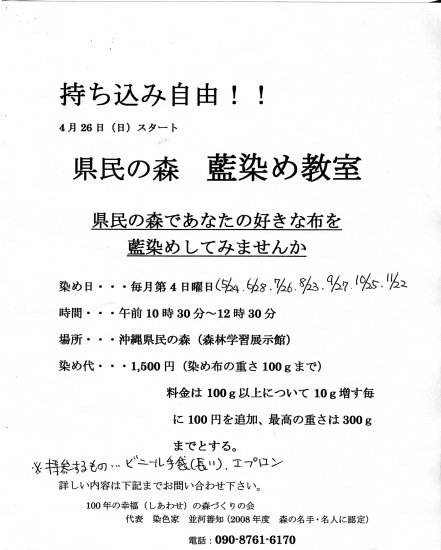 持ち込み自由！！
4月26日（日）スタート
県民の森　藍染め教室
県民の森であなたの好きな布を
藍染めしてみませんか
染め日・・・毎月第4日曜日(5/24.6/28.7/26.8/23.9/27.10/25.11/22
時間・・・午前10時30分〜12時30分
場所・・・沖縄県民の森（森林学習展示館）
染め代・・・1,500円（染め布の重さ100gまで）
料金は100g以上について10g増す毎
に100円を追加、最高の重さは300g
までとする。
※持参するもの…ビニール手袋(長い).エプロン
詳しい内容は下記までお問い合わせ下さい。
100年の幸福（しあわせ）の森づくりの会
代表　染色家　並河善知（2008年度　森の名手・名人に認定）
電話：090-8761-6170